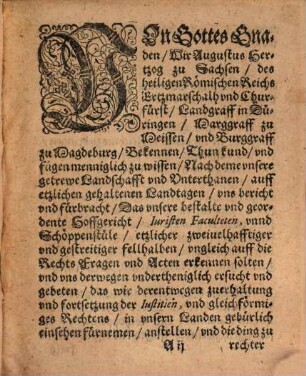 VOn Gottes Gna-
den / Wir Augustus Her-
tzog zu Sachsen / des
heiligen Römischen Reichs
Ertzmarschalh vnd Chur-
fürst / Landgraff in Dü-
ringen / Marggraff zu
Meissen / vnd Burggraff
zu Magdeburg / Bekennen / Thun kund / vnd
fügen menniglich zu wissen / Nach deme vnsere
getrewe Landschafft vnd Vnterthanen / auff
etzlichen gehaltenen Landtagen / vns bericht
vnd fürbracht / Das vnsere bestalte vnd geor-
dente Hoffgericht / Iuristen Faculteten, vnnd
Schöppenstüle / etzlicher zweiuelhafftiger
vnd gestreitiger fellhalben / vngleich auff die
Rechts Fragen vnd Acten erkennen solten /
vnd vns derwegen vndertheniglich ersucht vnd
gebeten / das wie derentwegen zuerhaltung
vnd fortsetzung der Iustitien, vnd gleichförmi-
ges Rechtens / in vnsern Landen gebürlich
einsehen fürnemen / anstellen / vnd die ding zu
A ij rechter